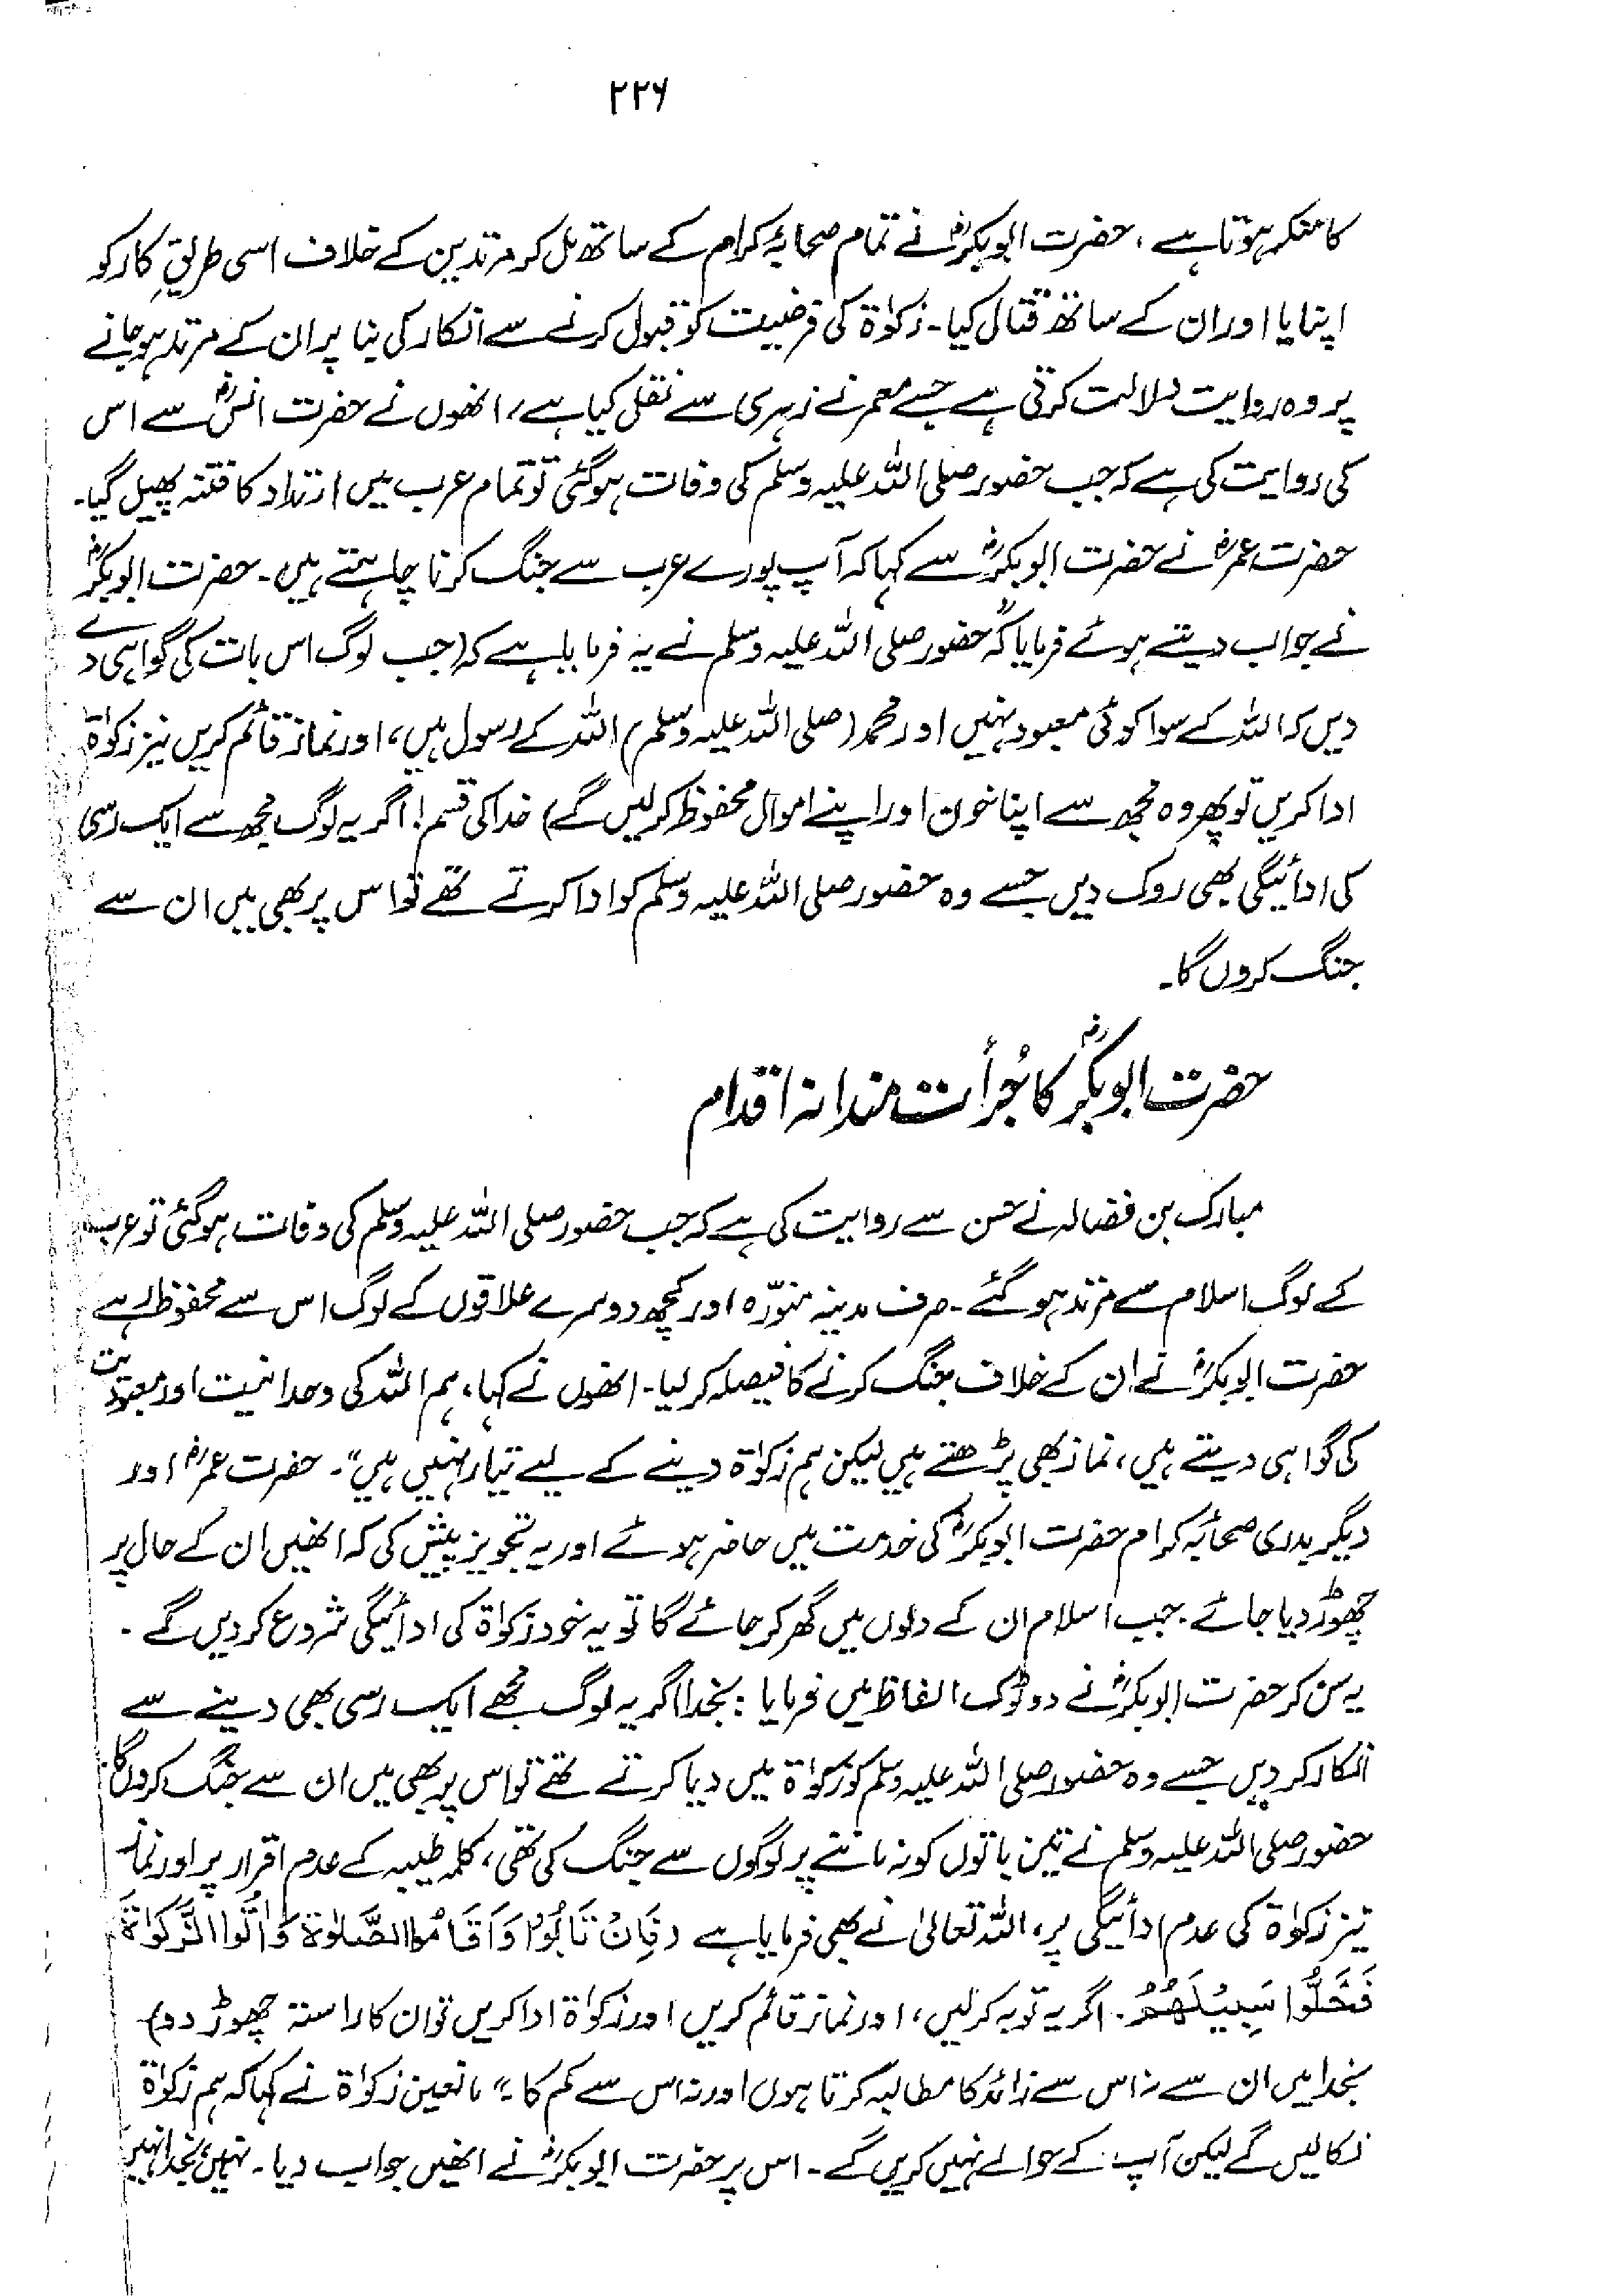 ۲۲۶
کا منکر ہوتا ہے، حضرت ابوبکرؓ نے تمام صحابۂ کرام کے ساتھ مل کر مرتدین کے خلاف اسی طریقِ کار کو
اپنایا اور ان کے ساتھ قتال کیا۔ زکوٰۃ کی فرضیت کو قبول کرنے سے انکار کی بنا پر ان کے مرتد ہو جانے
پر وہ روایت دلالت کرتی ہے جسے معمر نے زہری سے نقل کیا ہے، انھوں نے حضرت انسؓ سے اس
کی روایت کی ہے کہ جب حضور صلی اللہ علیہ وسلم کی وفات ہوگئی تو تمام عرب میں ارتداد کا فتنہ پھیل گیا۔
حضرت عمرؓ نے حضرت ابوبکرؓ سے کہا کہ آپ پورے عرب سے جنگ کرنا چاہتے ہیں۔ حضرت ابوبکرؓ
نے جواب دیتے ہوئے فرمایا کہ "حضور صلی اللہ علیہ وسلم نے یہ فرمایا ہے کہ (جب لوگ اس بات کی گواہی دے
دیں کہ اللہ کے سوا کوئی معبود نہیں اور محمد (صلی اللہ علیہ وسلم) اللہ کے رسول ہیں، اور نماز قائم کریں نیز زکوٰۃ
ادا کریں تو پھر وہ مجھ سے اپنا خون اور اپنے اموال محفوظ کرلیں گے) خدا کی قسم! اگر یہ لوگ مجھ سے ایک رسی
کی ادائیگی بھی روک دیں جسے وہ حضور صلی اللہ علیہ وسلم کو ادا کرتے تھے تو اس پر بھی میں ان سے
جنگ کروں گا۔
حضرت ابوبکرؓ کا جُرأت مندانہ اقدام
مبارک بن فضالہ نے حسن سے روایت کی ہے کہ جب حضور صلی اللہ علیہ وسلم کی وفات ہوگئی تو عرب
کے لوگ اسلام سے مرتد ہو گئے۔ صرف مدینہ منوّرہ اور کچھ دوسرے علاقوں کے لوگ اس سے محفوظ رہے
حضرت ابوبکرؓ نے ان کے خلاف جنگ کرنے کا فیصلہ کرلیا۔ انھوں نے کہا، ہم اللہ کی وحدانیت اور معبودیت
کی گواہی دیتے ہیں، نماز بھی پڑھتے ہیں لیکن ہم زکوٰۃ دینے کے لیے تیار نہیں ہیں"۔ حضرت عمرؓ اور
دیگر بدری صحابۂ کرام حضرت ابوبکرؓ کی خدمت میں حاضر ہوئے اور یہ تجویز پیش کی کہ انھیں ان کے حال پر
چھوڑ دیا جائے۔ جب اسلام ان کے دلوں میں گھر کر جائے گا تو یہ خود زکوٰۃ کی ادائیگی شروع کردیں گے۔
یہ سن کر حضرت ابوبکرؓ نے دو ٹوک الفاظ میں فرمایا: بخدا اگر یہ لوگ مجھے ایک رسی بھی دینے سے
انکار کر دیں جسے وہ حضور صلی اللہ علیہ وسلم کو زکوٰۃ میں دیا کرتے تھے تو اس پر بھی میں ان سے جنگ کروں گا
حضور صلی اللہ علیہ وسلم نے تین باتوں کو نہ ماننے پر لوگوں سے جنگ کی تھی، کلمہ طیبہ کے عدم اقرار پر اور نماز
نیز زکوٰۃ کی عدم ادائیگی پر، اللہ تعالیٰ نے بھی فرمایا ہے (فَاِنْ تَابُوْا وَاَقَامُوا الصَّلٰوۃَ وَاٰتَوُا الزَّکٰوۃَ
فَخَلُّوْا سَبِیْلَھُمْ۔ اگر یہ توبہ کرلیں، اور نماز قائم کریں اور زکوٰۃ ادا کریں تو ان کا راستہ چھوڑ دو)
بخدا میں ان سے نہ اس سے زائد کا مطالبہ کرتا ہوں اور نہ اس سے کم کا۔" مانعین زکوٰۃ نے کہا کہ ہم زکوٰۃ
نکالیں گے لیکن آپ کے حوالے نہیں کریں گے۔ اس پر حضرت ابوبکرؓ نے انھیں جواب دیا۔ نہیں، بخدا نہیں